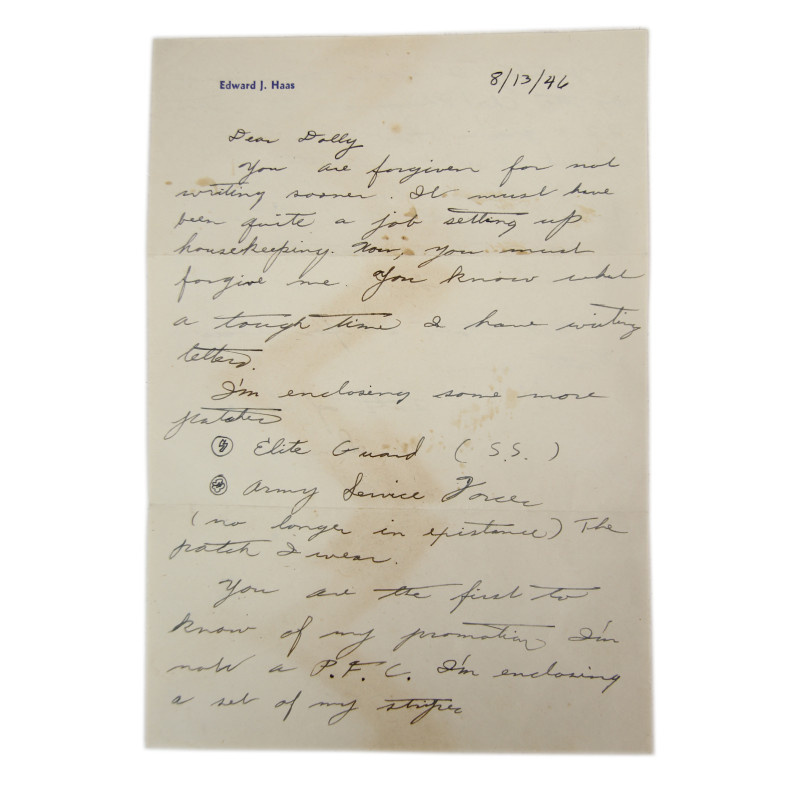 Edward J. Haas
8/13/46
Dear Dolly
You are forgiven for not
writing sooner. It must have
been quite a job setting up
housekeeping. Now, you must
forgive me. You know what
a tough time I have writing
letters.
I'm enclosing some more
patches
Elite Guard (S.S.)
Army Service Forces
(no longer in existance) The
patch I wear.
You are the first to
know of my promotion I'm
now a P.F.C. I'm enclosing
a set of my stripes